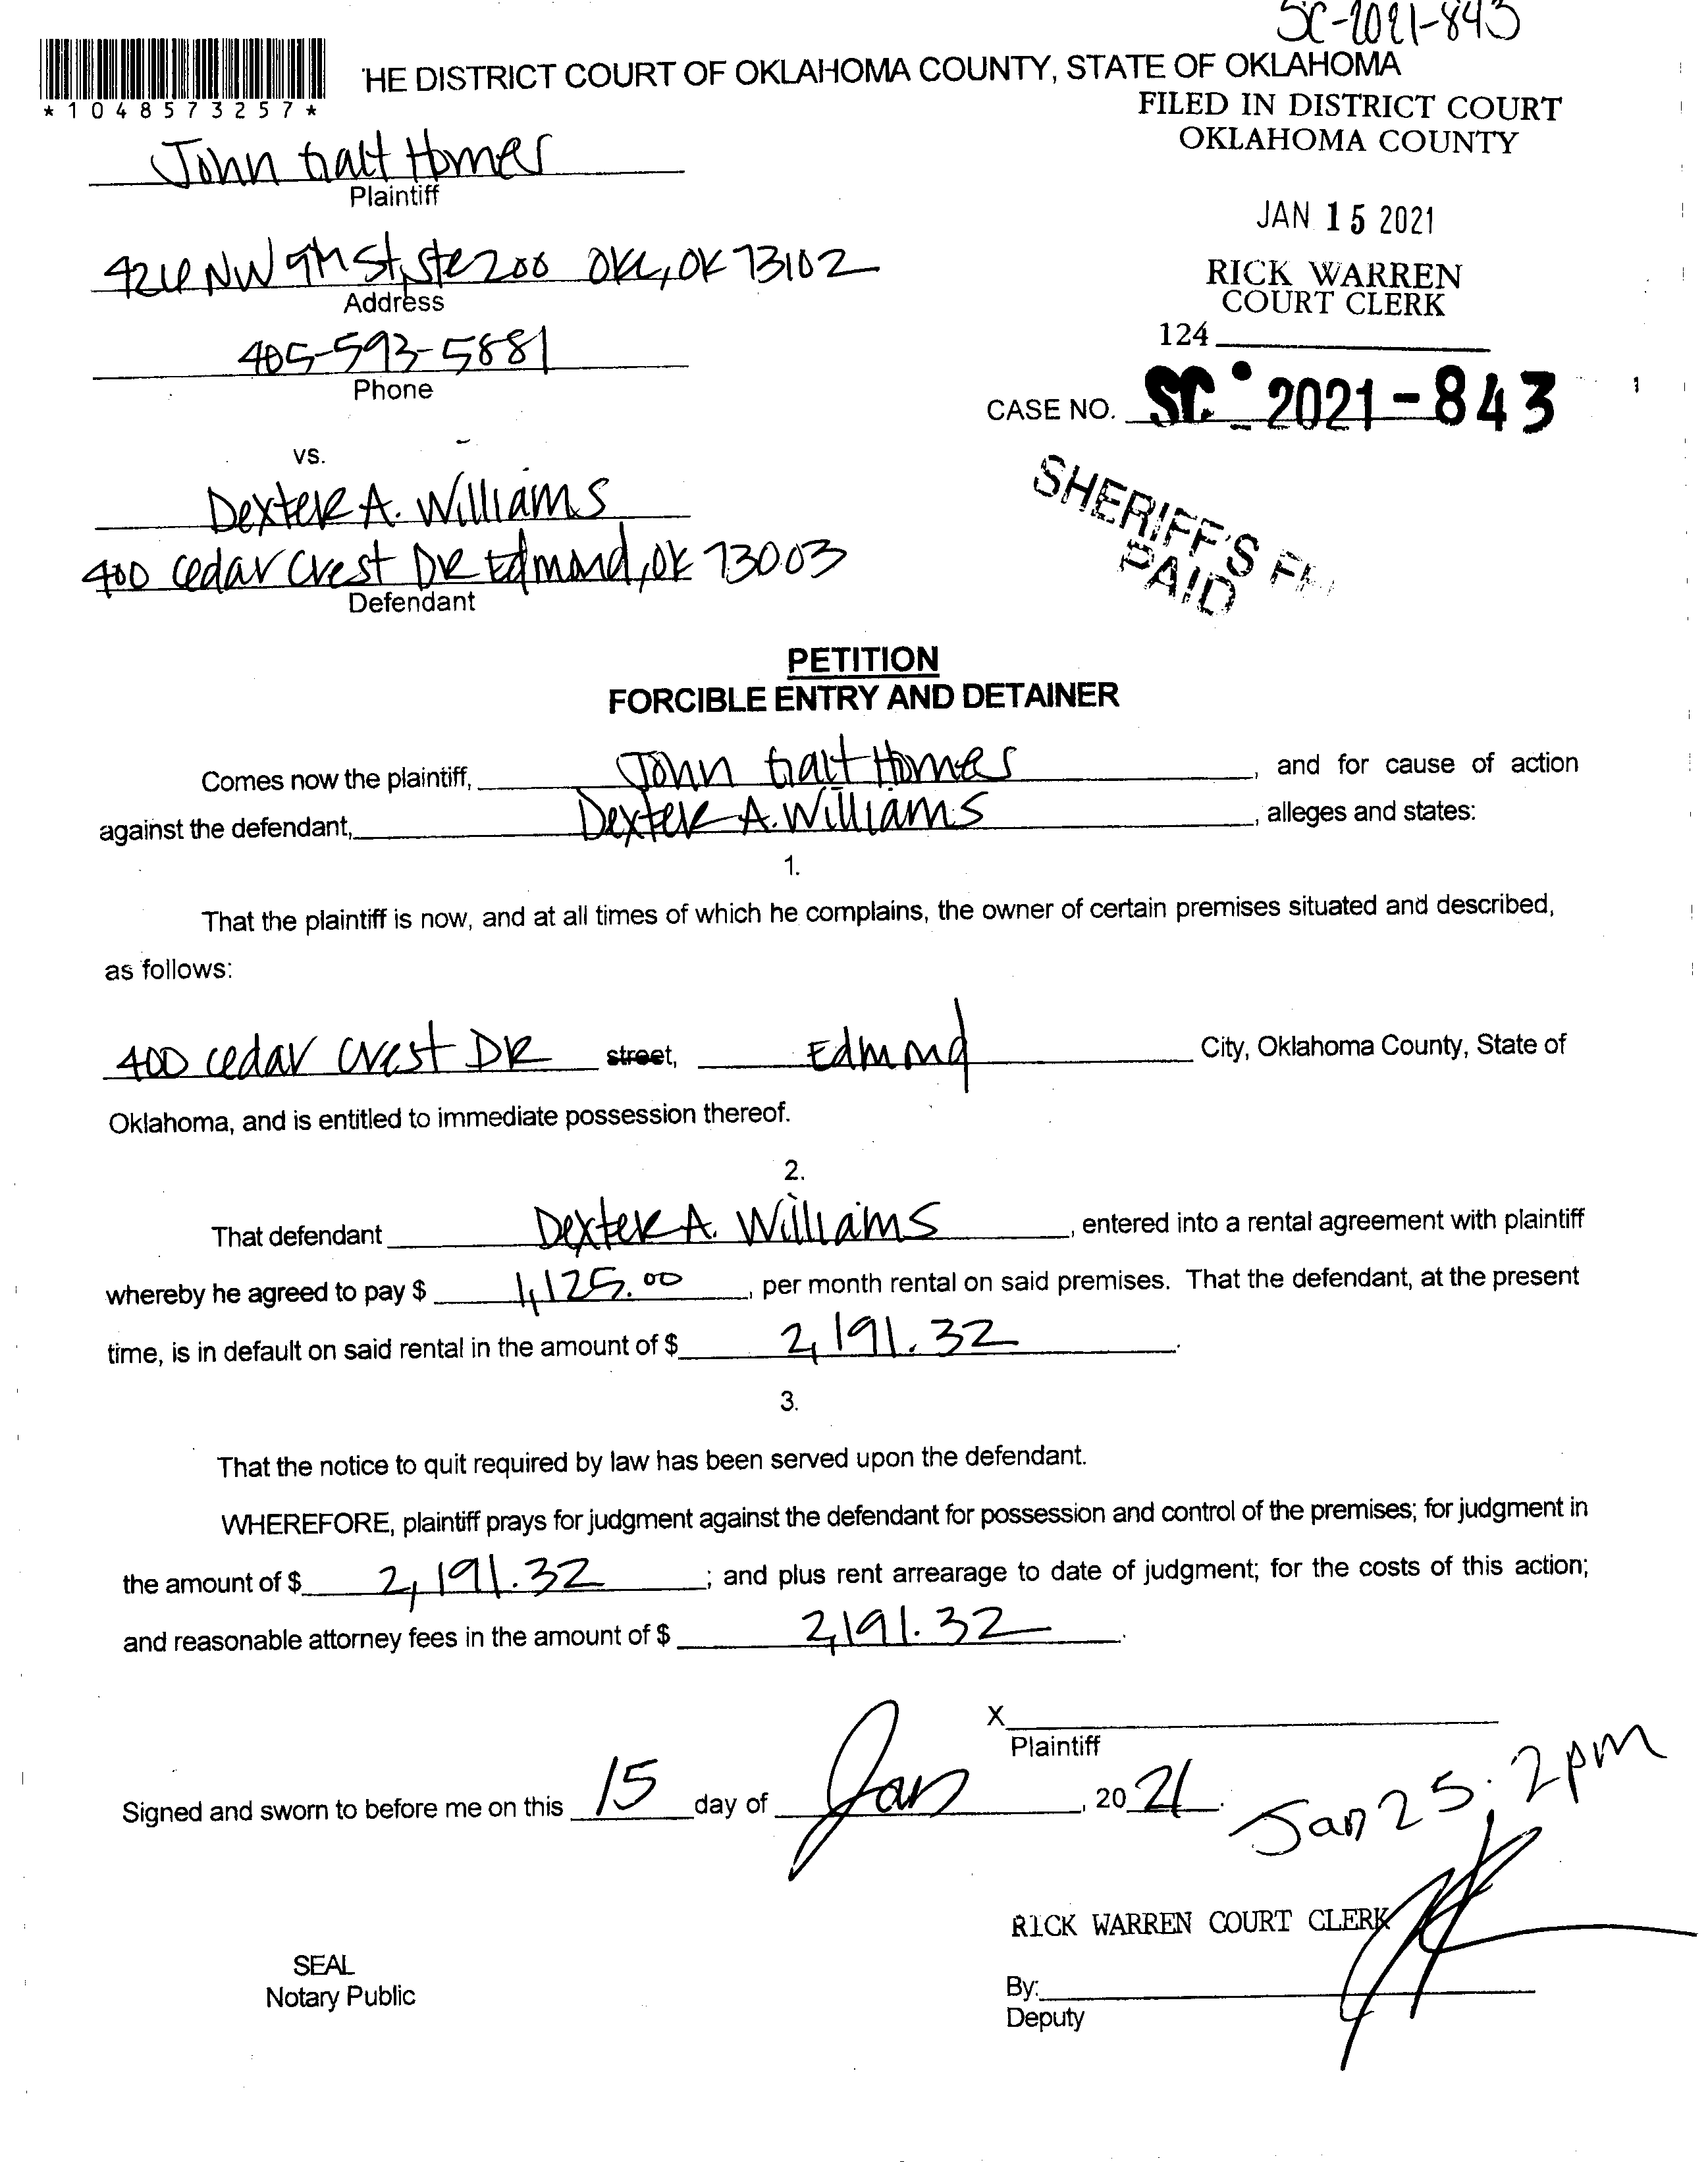 SC-2021-843
*1048573257*
HE DISTRICT COURT OF OKLAHOMA COUNTY, STATE OF OKLAHOMA
FILED IN DISTRICT COURT
OKLAHOMA COUNTY
John Galt Homes
Plaintiff
JAN 15 2021
NW 9th St, Ste 200 OKC, OK 73102
Address
RICK WARREN
COURT CLERK
124
405-593-5881
Phone
CASE NO. SC 2021-843
vs.
Dexter A. Williams
400 Cedar Crest DR Edmond, OK 73003
Defendant
SHERIFF'S
PAID
PETITION
FORCIBLE ENTRY AND DETAINER
Comes now the plaintiff, John Galt Homes, and for cause of action
against the defendant, Dexter A. Williams, alleges and states:
1.
That the plaintiff is now, and at all times of which he complains, the owner of certain premises situated and described,
as follows:
400 Cedar Crest DR street, Edmond City, Oklahoma County, State of
Oklahoma, and is entitled to immediate possession thereof.
2.
That defendant Dexter A. Williams, entered into a rental agreement with plaintiff
whereby he agreed to pay $ 1,125.00, per month rental on said premises. That the defendant, at the present
time, is in default on said rental in the amount of $ 2,191.32.
3.
That the notice to quit required by law has been served upon the defendant.
WHEREFORE, plaintiff prays for judgment against the defendant for possession and control of the premises; for judgment in
the amount of $ 2,191.32; and plus rent arrearage to date of judgment; for the costs of this action;
and reasonable attorney fees in the amount of $ 2,191.32.
X
Plaintiff
Signed and sworn to before me on this 15 day of Jan, 2021.
Jan 25, 2pm
RICK WARREN COURT CLERK
SEAL
Notary Public
By:
Deputy